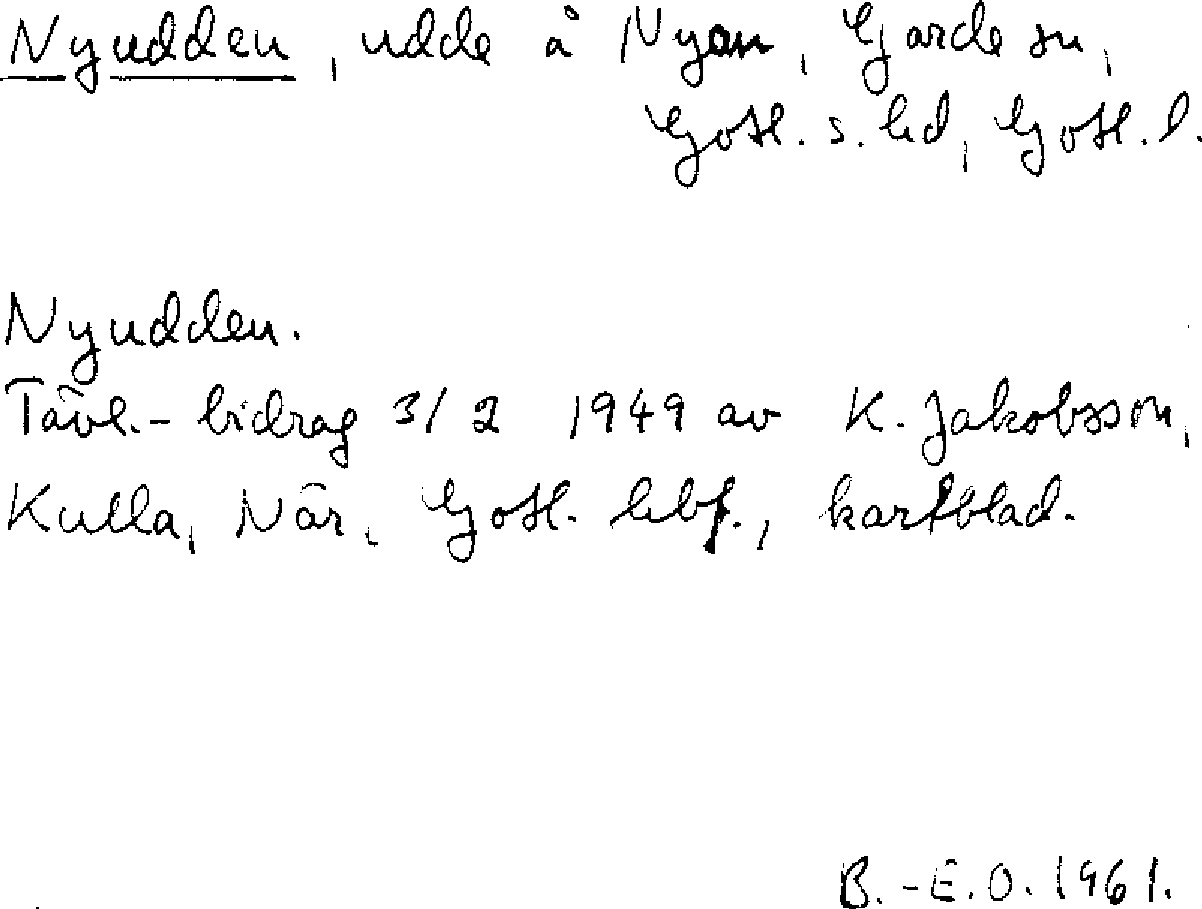 Nyudden, udde å Nyan, Garde sn,
Gotl. s. hd, Gotl. l.
Nyudden.
Tävl.-bidrag 3/2 1949 av K. Jakobsson,
Kulla, När, Gotl. hbf., kartblad.
B.-E.O. 1961.